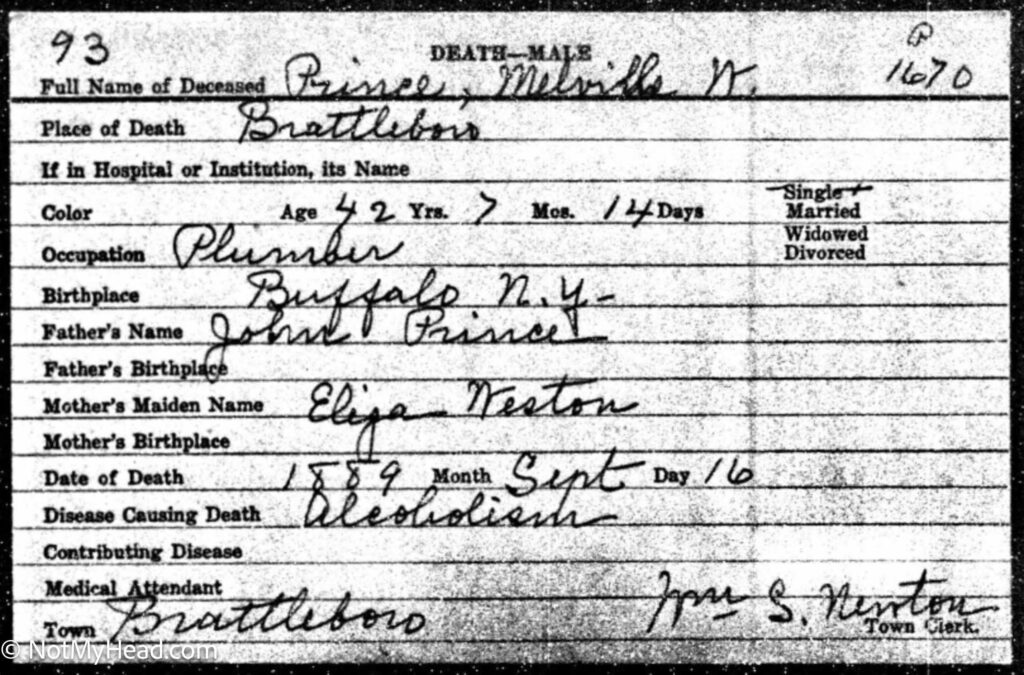 93 DEATH—MALE P
1670
Full Name of Deceased Prince, Melville W.
Place of Death Brattleboro
If in Hospital or Institution, its Name
Color Age 42 Yrs. 7 Mos. 14 Days Single
Married
Occupation Plumber Widowed
Divorced
Birthplace Buffalo N.Y-
Father's Name John Prince
Father's Birthplace
Mother's Maiden Name Eliza Weston
Mother's Birthplace
Date of Death 1889 Month Sept Day 16
Disease Causing Death Alcoholism
Contributing Disease
Medical Attendant
Town Brattleboro Wm S. Newton
Town Clerk.
© NotMyHead.com